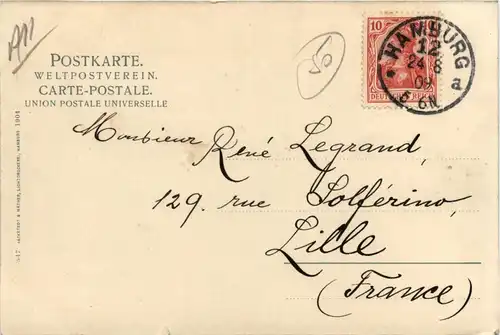 A11
50
POSTKARTE.
WELTPOSTVEREIN.
CARTE-POSTALE.
UNION POSTALE UNIVERSELLE
10
HAMBURG
12
24 8
09
5-6N.
* a
DEUTSCHES REICH
Monsieur René Legrand,
129. rue Solférino,
Lille
(France)
HAMBURG 1904